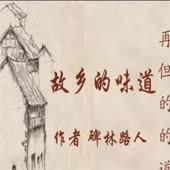 故乡的味道
作者 碑林路人
再但的的道